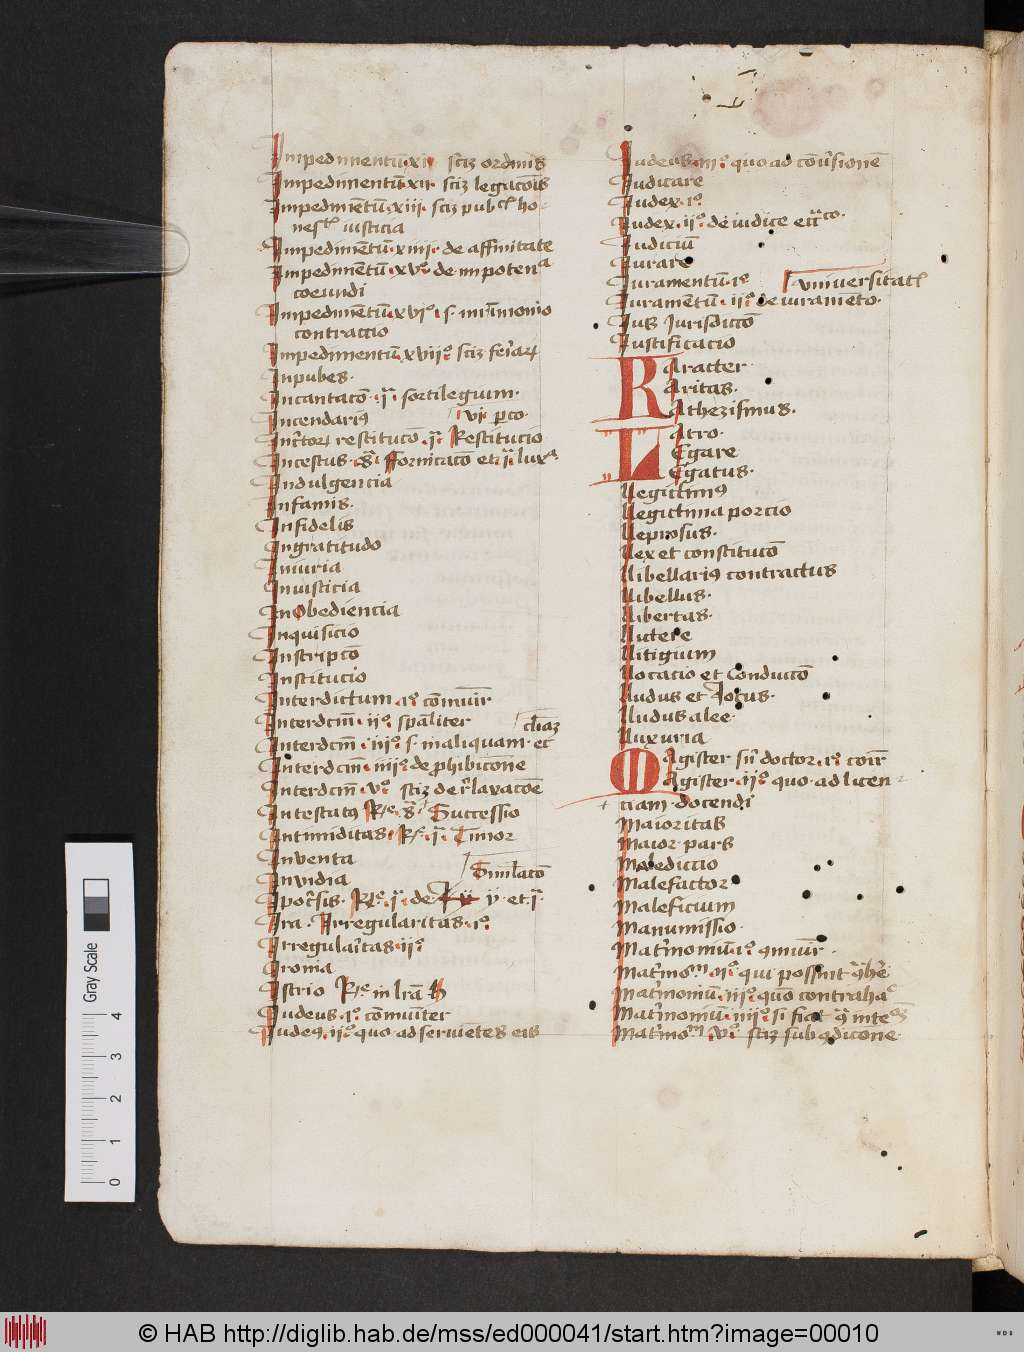 Impedimentū xi sciz ordinis
Impedimentū xii sciz legacōis
Impedimētū xiii sciz publ ho-
nest iusticia
Impedimētū xiiii de affinitate
Impedimētū xvº de impotenª
coeundi
Impedimētū xviº s. matrimonio
contracto
Impedimentū xviiº sciz feriaꝝ
Inpubes
Incantacō sortilegium
Incendariꝰ
restitucō Restitucio
Incestus Fornicacō et luxª
Indulgencia
Infamis
Infidelis
Ingratitudo
Iniuria
Iniusticia
Inobediencia
Inquisicio
Inscripcō
Institucio
Interdictum iº cōmuniter
Interdcm iiº spāliter
Interdcm iiiº s. in aliquam ec
clīaz
Interdcm iiiiº de prohibicōne
Interdcm vº sciz de relaxacōe
Intestatꝰ Rº Successio
Intimiditas Rº Timor
Inventa
Invidia
Ipocrisis Rº de
Similacō
Ira Irregularitas iº
Irregularitas iiº
Ironia
Istrio Rº in lrā
Iudeus iº cōmuniter
Iudeꝰ iiº quo ad servientes eis
Iudeus iiiº quo ad cōuersionē
Iudicare
Iudex iº
Iudex iiº de iudice
Iudiciū
Iurare
Iuramentum iº universitat
Iuramētū iiº de iuramēto
Ius Iurisdiccō
Iustificacio
Karacter
Karitas
Kathezismus
Latro
Legare
Legatus
Legittimꝰ
Legittima porcio
Leprosus
Lex et constitucō
Libellariꝰ contractus
Libellus
Libertas
Litere
Litigium
Locacio et conduccō
Ludus et Iocus
Ludus alee
Luxuria
Magister sīu doctor iº cōiter
Magister iiº quo ad licen
ciam docendi
Maioritas
Maior pars
Maledictio
Malefactor
Maleficium
Manumissio
Matrimoniū iº
Matrimoᵐ iiº qui possunt
Matrimoniū iiiº quō contrahaᶜ
Matrimoniū iiiiº si fiat
Matrimoᵐ vº sciz sub ꝯdicone
Gray Scale
4
3
2
1
0
© HAB http://diglib.hab.de/mss/ed000041/start.htm?image=00010